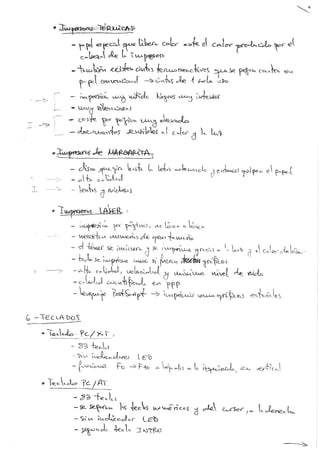 • Impresoras TÉRMICAS:
- papel especial que libera color ante el calor producido por el
cabezal de la impresora
- también existen cintas termorreactivas que se pegan contra un
papel convencional → cintas de 1 solo uso
- impresión muy nítida. Negros muy intensos
- muy silenciosas
- coste por página muy elevado
- documentos sensibles al calor y la luz
• Impresoras de MARGARITA:
- disco que gira hasta la letra adecuada y entonces golpea el papel
- alta calidad
- lentas y ruidosas
• Impresoras LÁSER:
- impresión por páginas, no línea a línea
- necesitan memorias de gran tamaño
- el tóner se
- todo se imprime como si fueran gráficos
- alta calidad, velocidad y mínimo nivel de ruido
- calidad cuantificada en PPP
- lenguaje PostScript → imprimir
6 - TECLADOS
• Teclado PC/XT:
- 83 teclas
- sin indicadores LED
- funciones F0 → F10 a la izquierda, en vertical
• Teclado PC/AT
- 83 teclas
- se separan las teclas numéricas y del cursor, a la derecha
- sin indicador LED
- segunda tecla INTRO